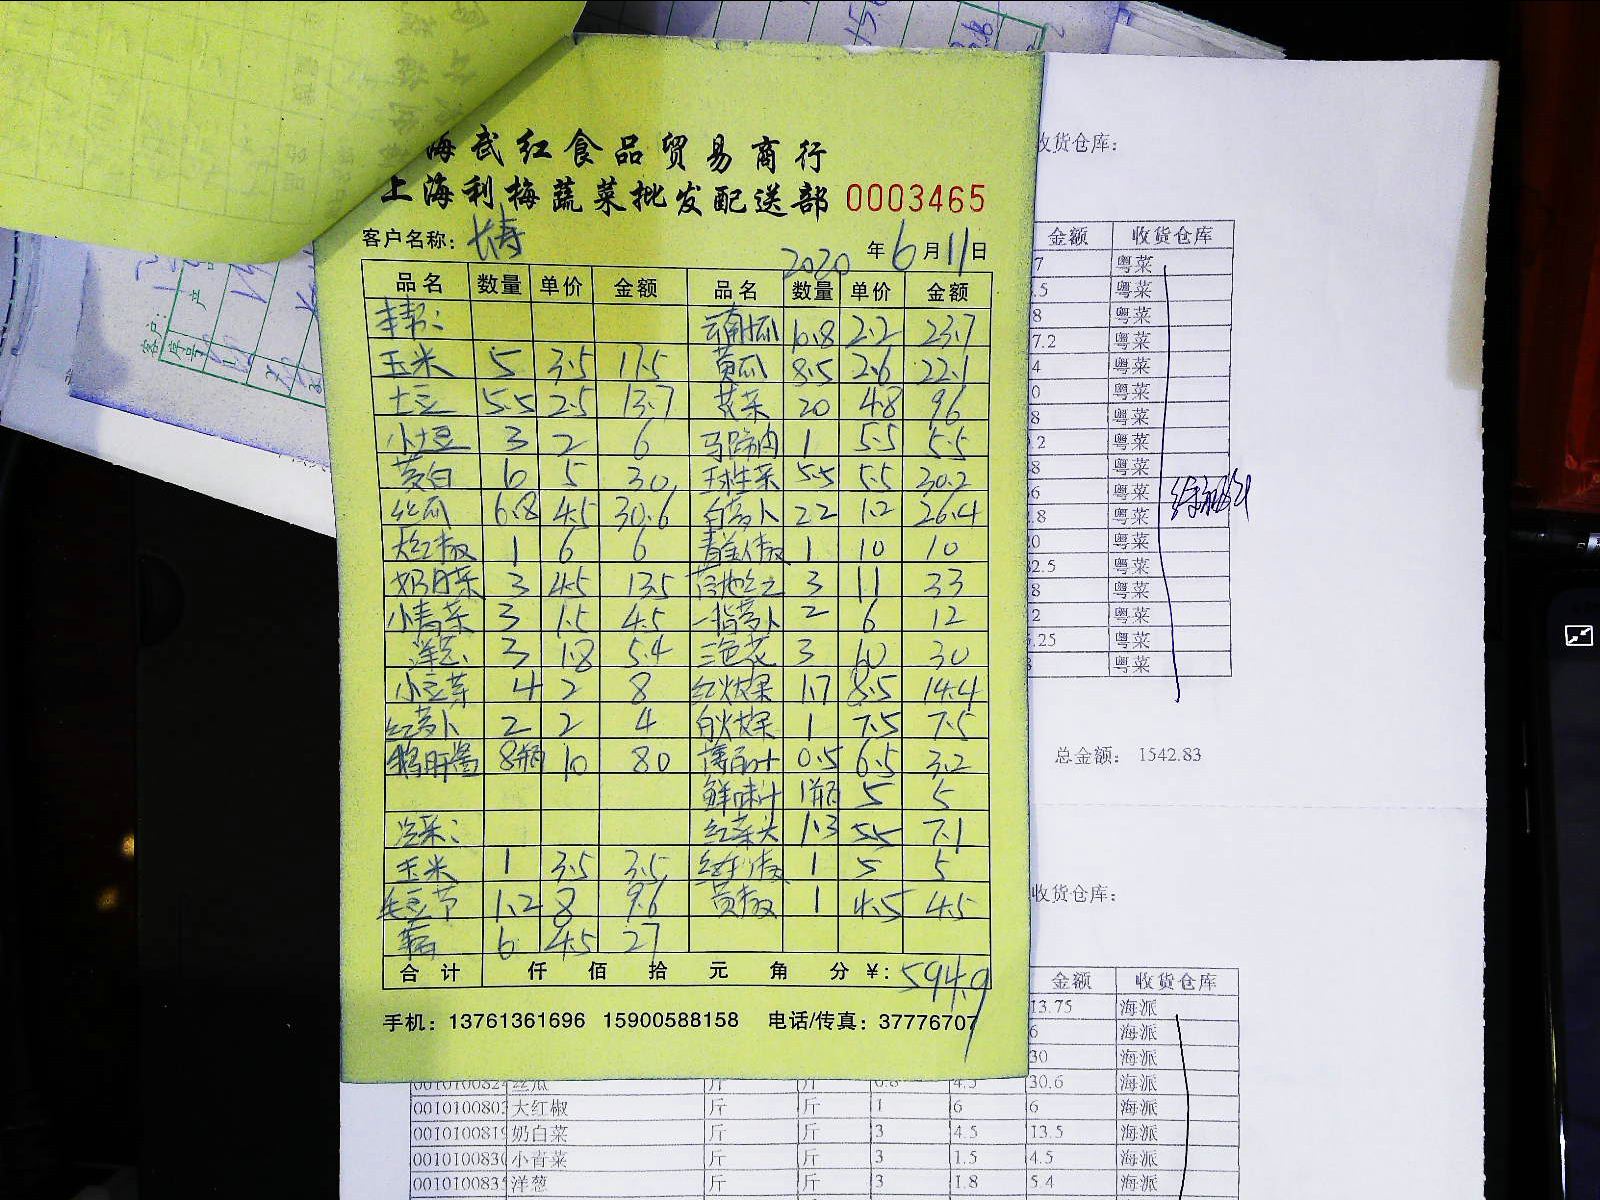 海武红食品贸易商行
上海利梅蔬菜批发配送部 0003465
客户名称: 长寿 2020 年 6 月 11 日
品名 数量 单价 金额 品名 数量 单价 金额
本帮: 云南瓜 10.8 2.2 23.7
玉米 5 3.5 17.5 黄瓜 8.5 2.6 22.1
土豆 5.5 2.5 13.7 20 4.8 96
小土豆 3 2 6 马蹄肉 1 5.5 5.5
茭白 6 5 30 球生菜 5.5 5.5 30.2
丝瓜 6.8 4.5 30.6 白萝卜 22 1.2 26.4
大红椒 1 6 6 青尖椒 1 10 10
奶白菜 3 4.5 13.5 3 11 33
小青菜 3 1.5 4.5 一指萝卜 2 6 12
洋葱 3 1.8 5.4 三色花 3 10 30
小豆芽 4 2 8 红火龙果 1.7 8.5 14.4
红萝卜 2 2 4 白火龙果 1 7.5 7.5
鹅肝酱 8瓶 10 80 薄荷叶 0.5 6.5 3.2
鲜味汁 1瓶 5 5
冷菜: 红菜头 1.3 5.5 7.1
玉米 1 3.5 3.5 1 5 5
毛豆节 1.2 8 9.6 黄椒 1 4.5 4.5
6 4.5 27
合计 仟 佰 拾 元 角 分 ¥: 594.9
手机: 13761361696 15900588158 电话/传真: 37776707
收货仓库:
金额 收货仓库
7 粤菜
.5 粤菜
8 粤菜
7.2 粤菜
4 粤菜
0 粤菜
8 粤菜
.2 粤菜
8 粤菜
6 粤菜
.8 粤菜
0 粤菜
2.5 粤菜
8 粤菜
2 粤菜
.25 粤菜
粤菜
总金额: 1542.83
收货仓库:
金额 收货仓库
13.75 海派
6 海派
30 海派
丝瓜 斤 斤 6.8 4.5 30.6 海派
001010080 大红椒 斤 斤 1 6 6 海派
001010081 奶白菜 斤 斤 3 4.5 13.5 海派
001010083 小青菜 斤 斤 3 1.5 4.5 海派
001010083 洋葱 斤 斤 3 1.8 5.4 海派